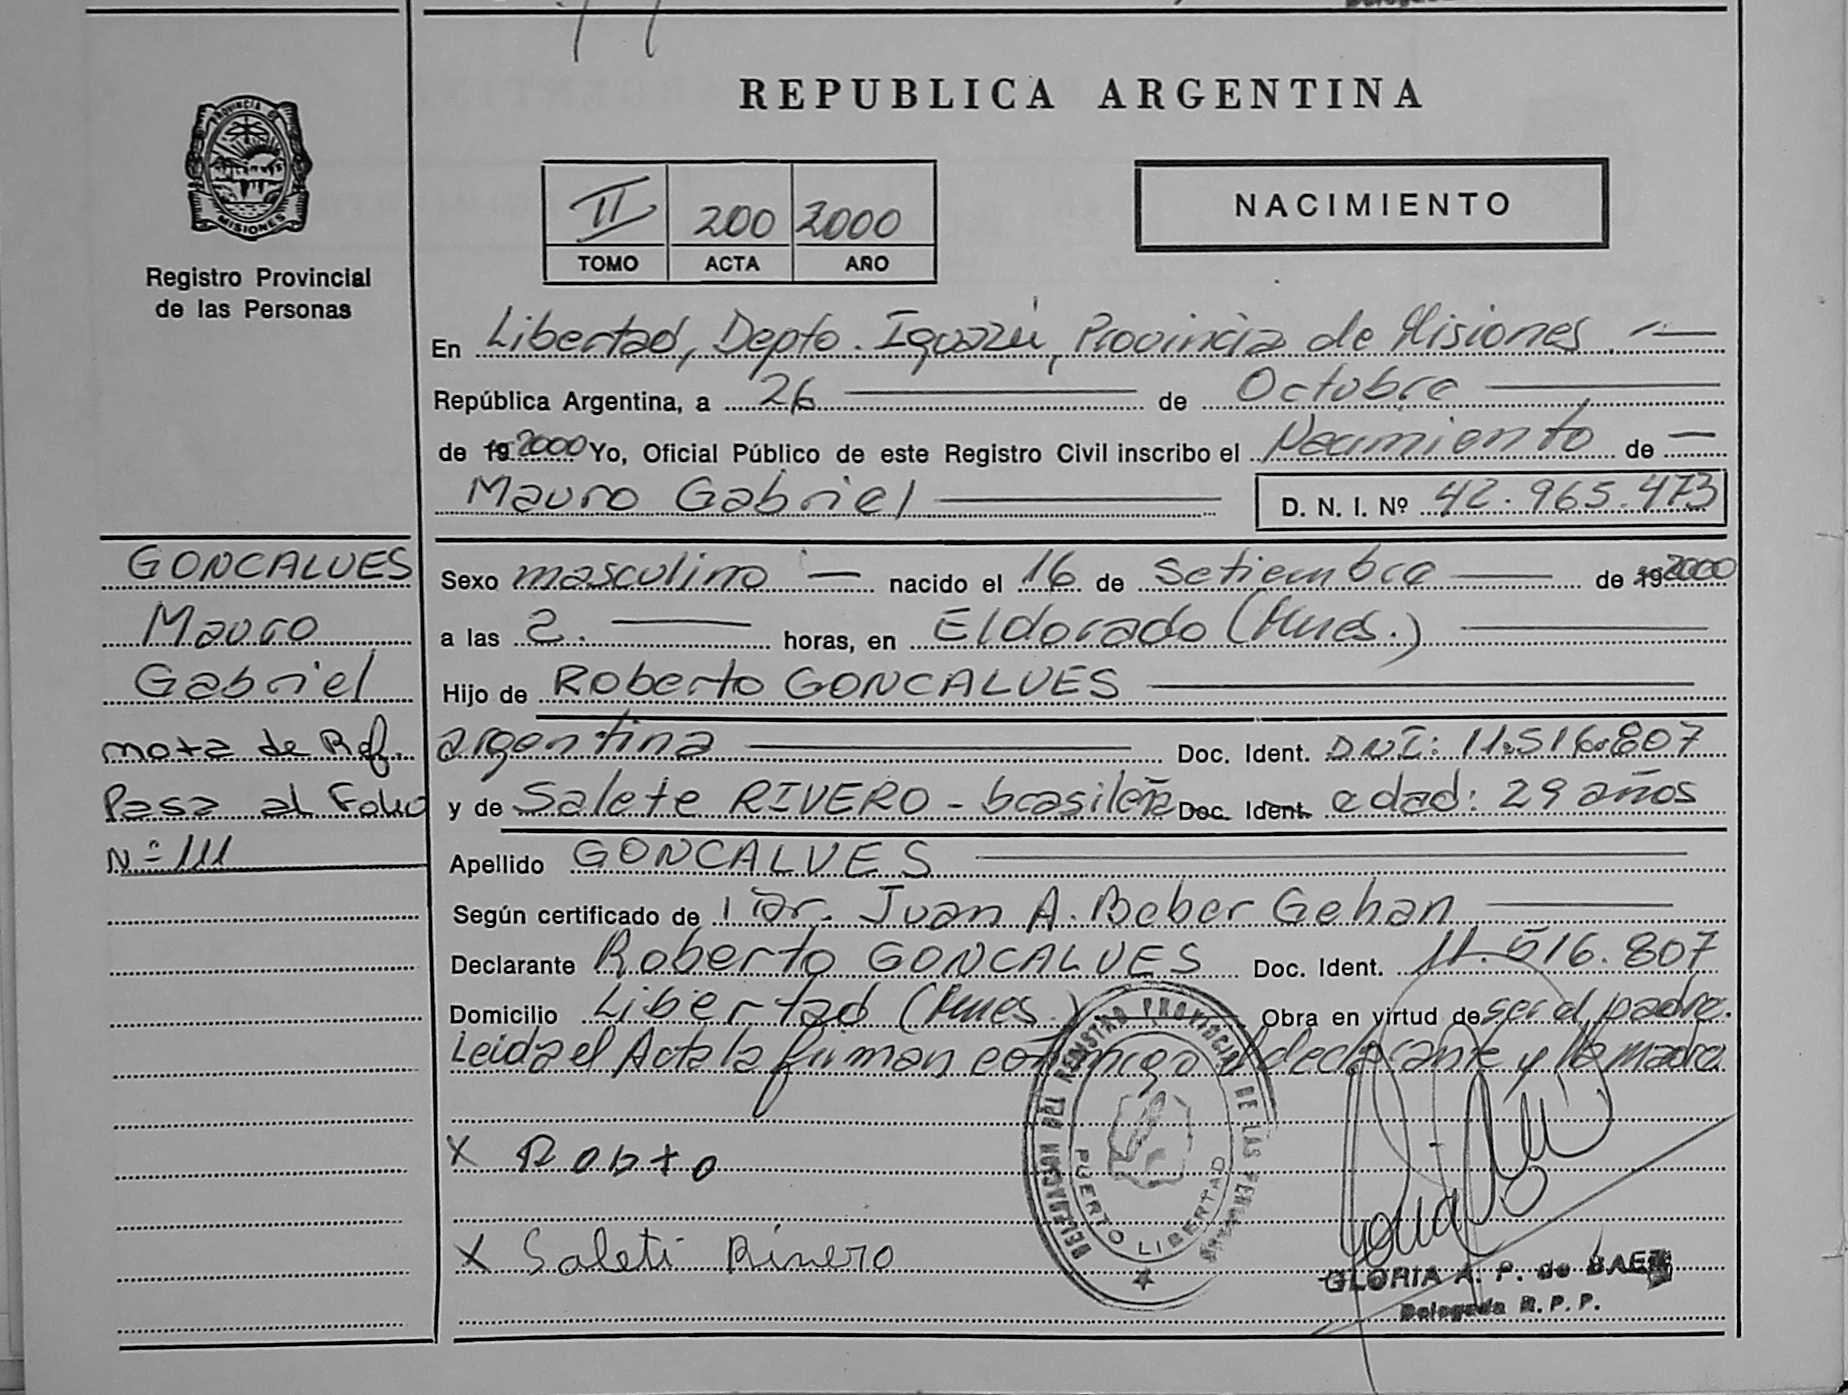 REPUBLICA ARGENTINA
PROVINCIA DE
MISIONES
Registro Provincial
de las Personas
II 200 2000
TOMO ACTA AÑO
NACIMIENTO
En Libertad, Depto. Iguazú, Provincia de Misiones
República Argentina, a 26 de Octubre
de 19 2000 Yo, Oficial Público de este Registro Civil inscribo el Nacimiento de
Mauro Gabriel D. N. I. Nº 42.965.473
GONCALVES
Mauro
Gabriel
nota de Ref.
Pasa al Folio
Nº 111
Sexo masculino nacido el 16 de Setiembre de 19 2000
a las 2. horas, en Eldorado (Mnes.)
Hijo de Roberto GONCALVES
argentina Doc. Ident. DNI: 11.516.807
y de Salete RIVERO - brasileña Doc. Ident. edad: 29 años
Apellido GONCALVES
Según certificado de Dr. Juan A. Beber Gehan
Declarante Roberto GONCALVES Doc. Ident. 11.516.807
Domicilio Libertad (Mnes.) Obra en virtud de ser el padre.
Leida el Acta la firman conmigo el declarante y la madre
X Robto
X Saleti Rivero
DELEGACION DEL REGISTRO PROVINCIAL DE LAS PERSONAS
PUERTO LIBERTAD
GLORIA A. P. de BAEZ
Delegada R. P. P.